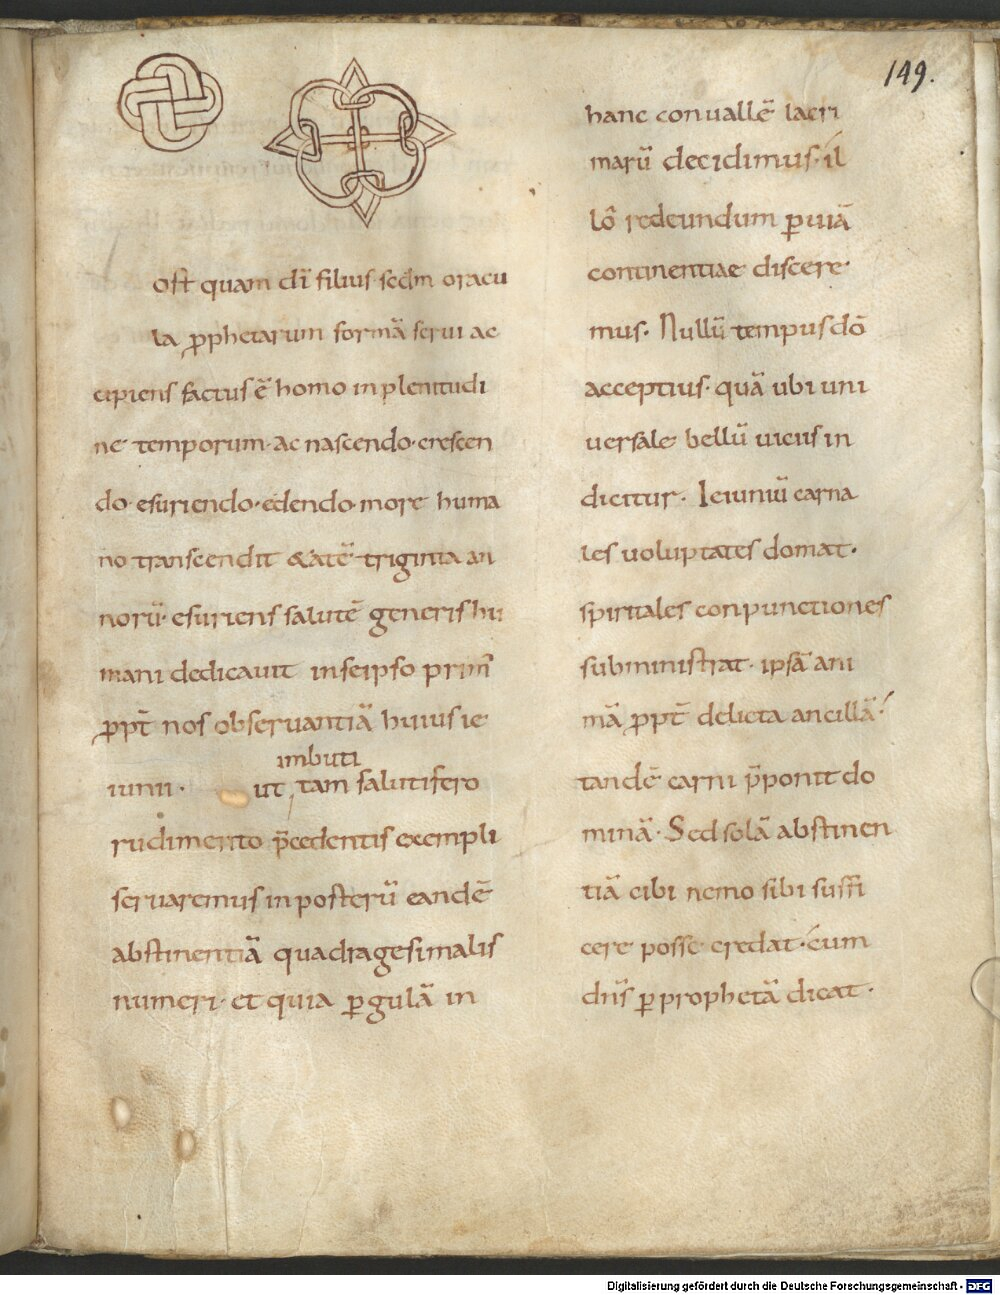 149.
oſt quam dī filius· secdm oracu
la ꝓphetarum formā serui ac
cipiens factus ē homo in plenitudi
ne temporum· ac nascendo· crescen
do· esuriendo· edendo· more huma
no transcendit &atē triginta an
norū· esuriens salutē generis hu
mani dedicauit in seipso prim̄
ꝓpt̄ nos obseruantiā huius ie
imbuti
iunii· ut, tam salutifero
rudimento p̄cedentis exempli
seruaremus in posterū eandē
abstinentiā quadragesimalis
numeri· et quia ꝑ gulā in
hanc conuallē lacri
marū decidimus· il
lō redeundum ꝑ uiā
continentiae discere
mus· Nullū tempus dō
acceptius· quā ubi uni
uersale bellū uiciis in
dicitur· Ieiuniū carna
les uoluptates domat·
spiritales conpunctiones
subministrat· ipsā ani
mā ꝓpt̄ delicta ancillā·
tandē carni p̄ponit do
minā· Sed solā abstinen
tiā cibi nemo sibi suffi
cere posse credat· cum
dn̄s ꝑ prophetā dicat·
Digitalisierung gefördert durch die Deutsche Forschungsgemeinschaft - DFG